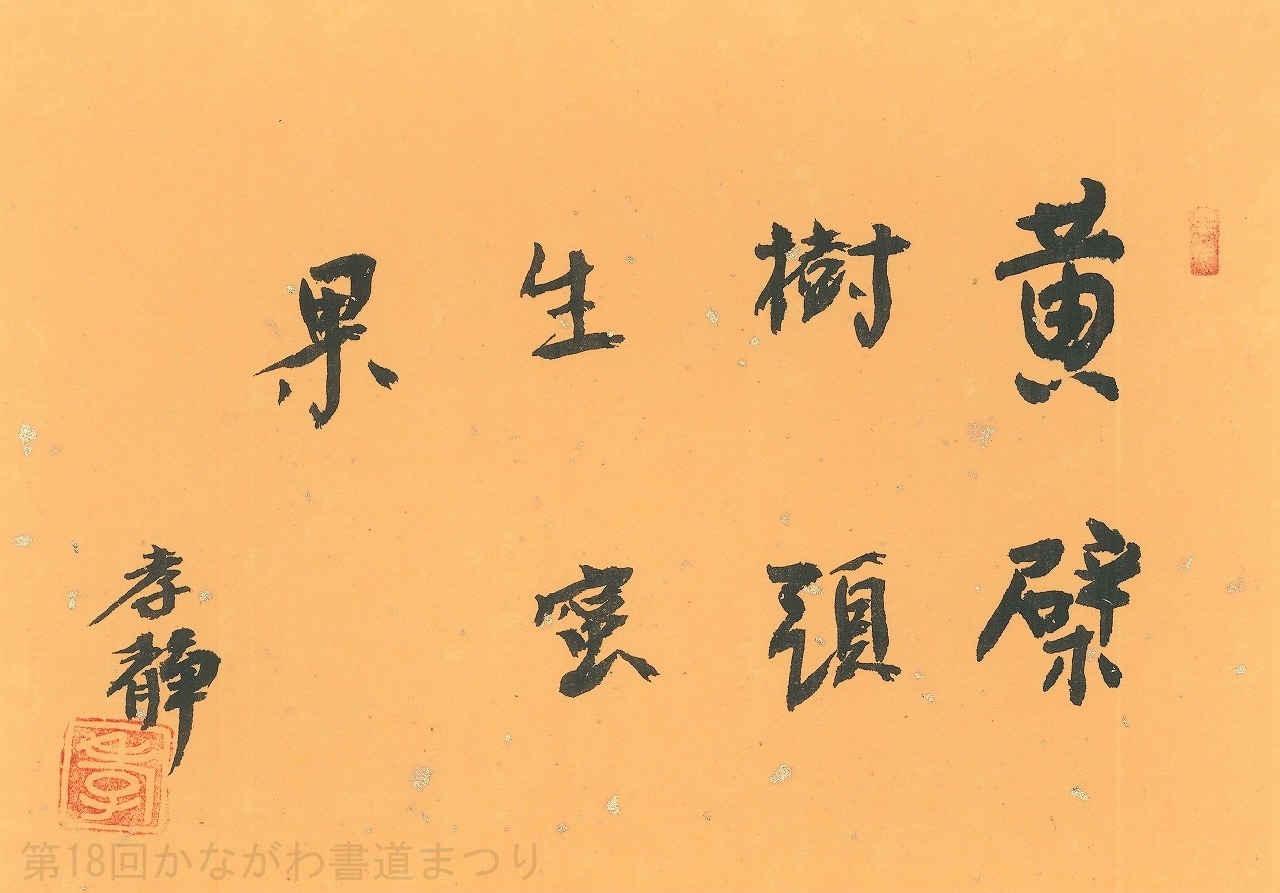 黄檗
樹頭
生蜜
果
孝静
第18回かながわ書道まつり